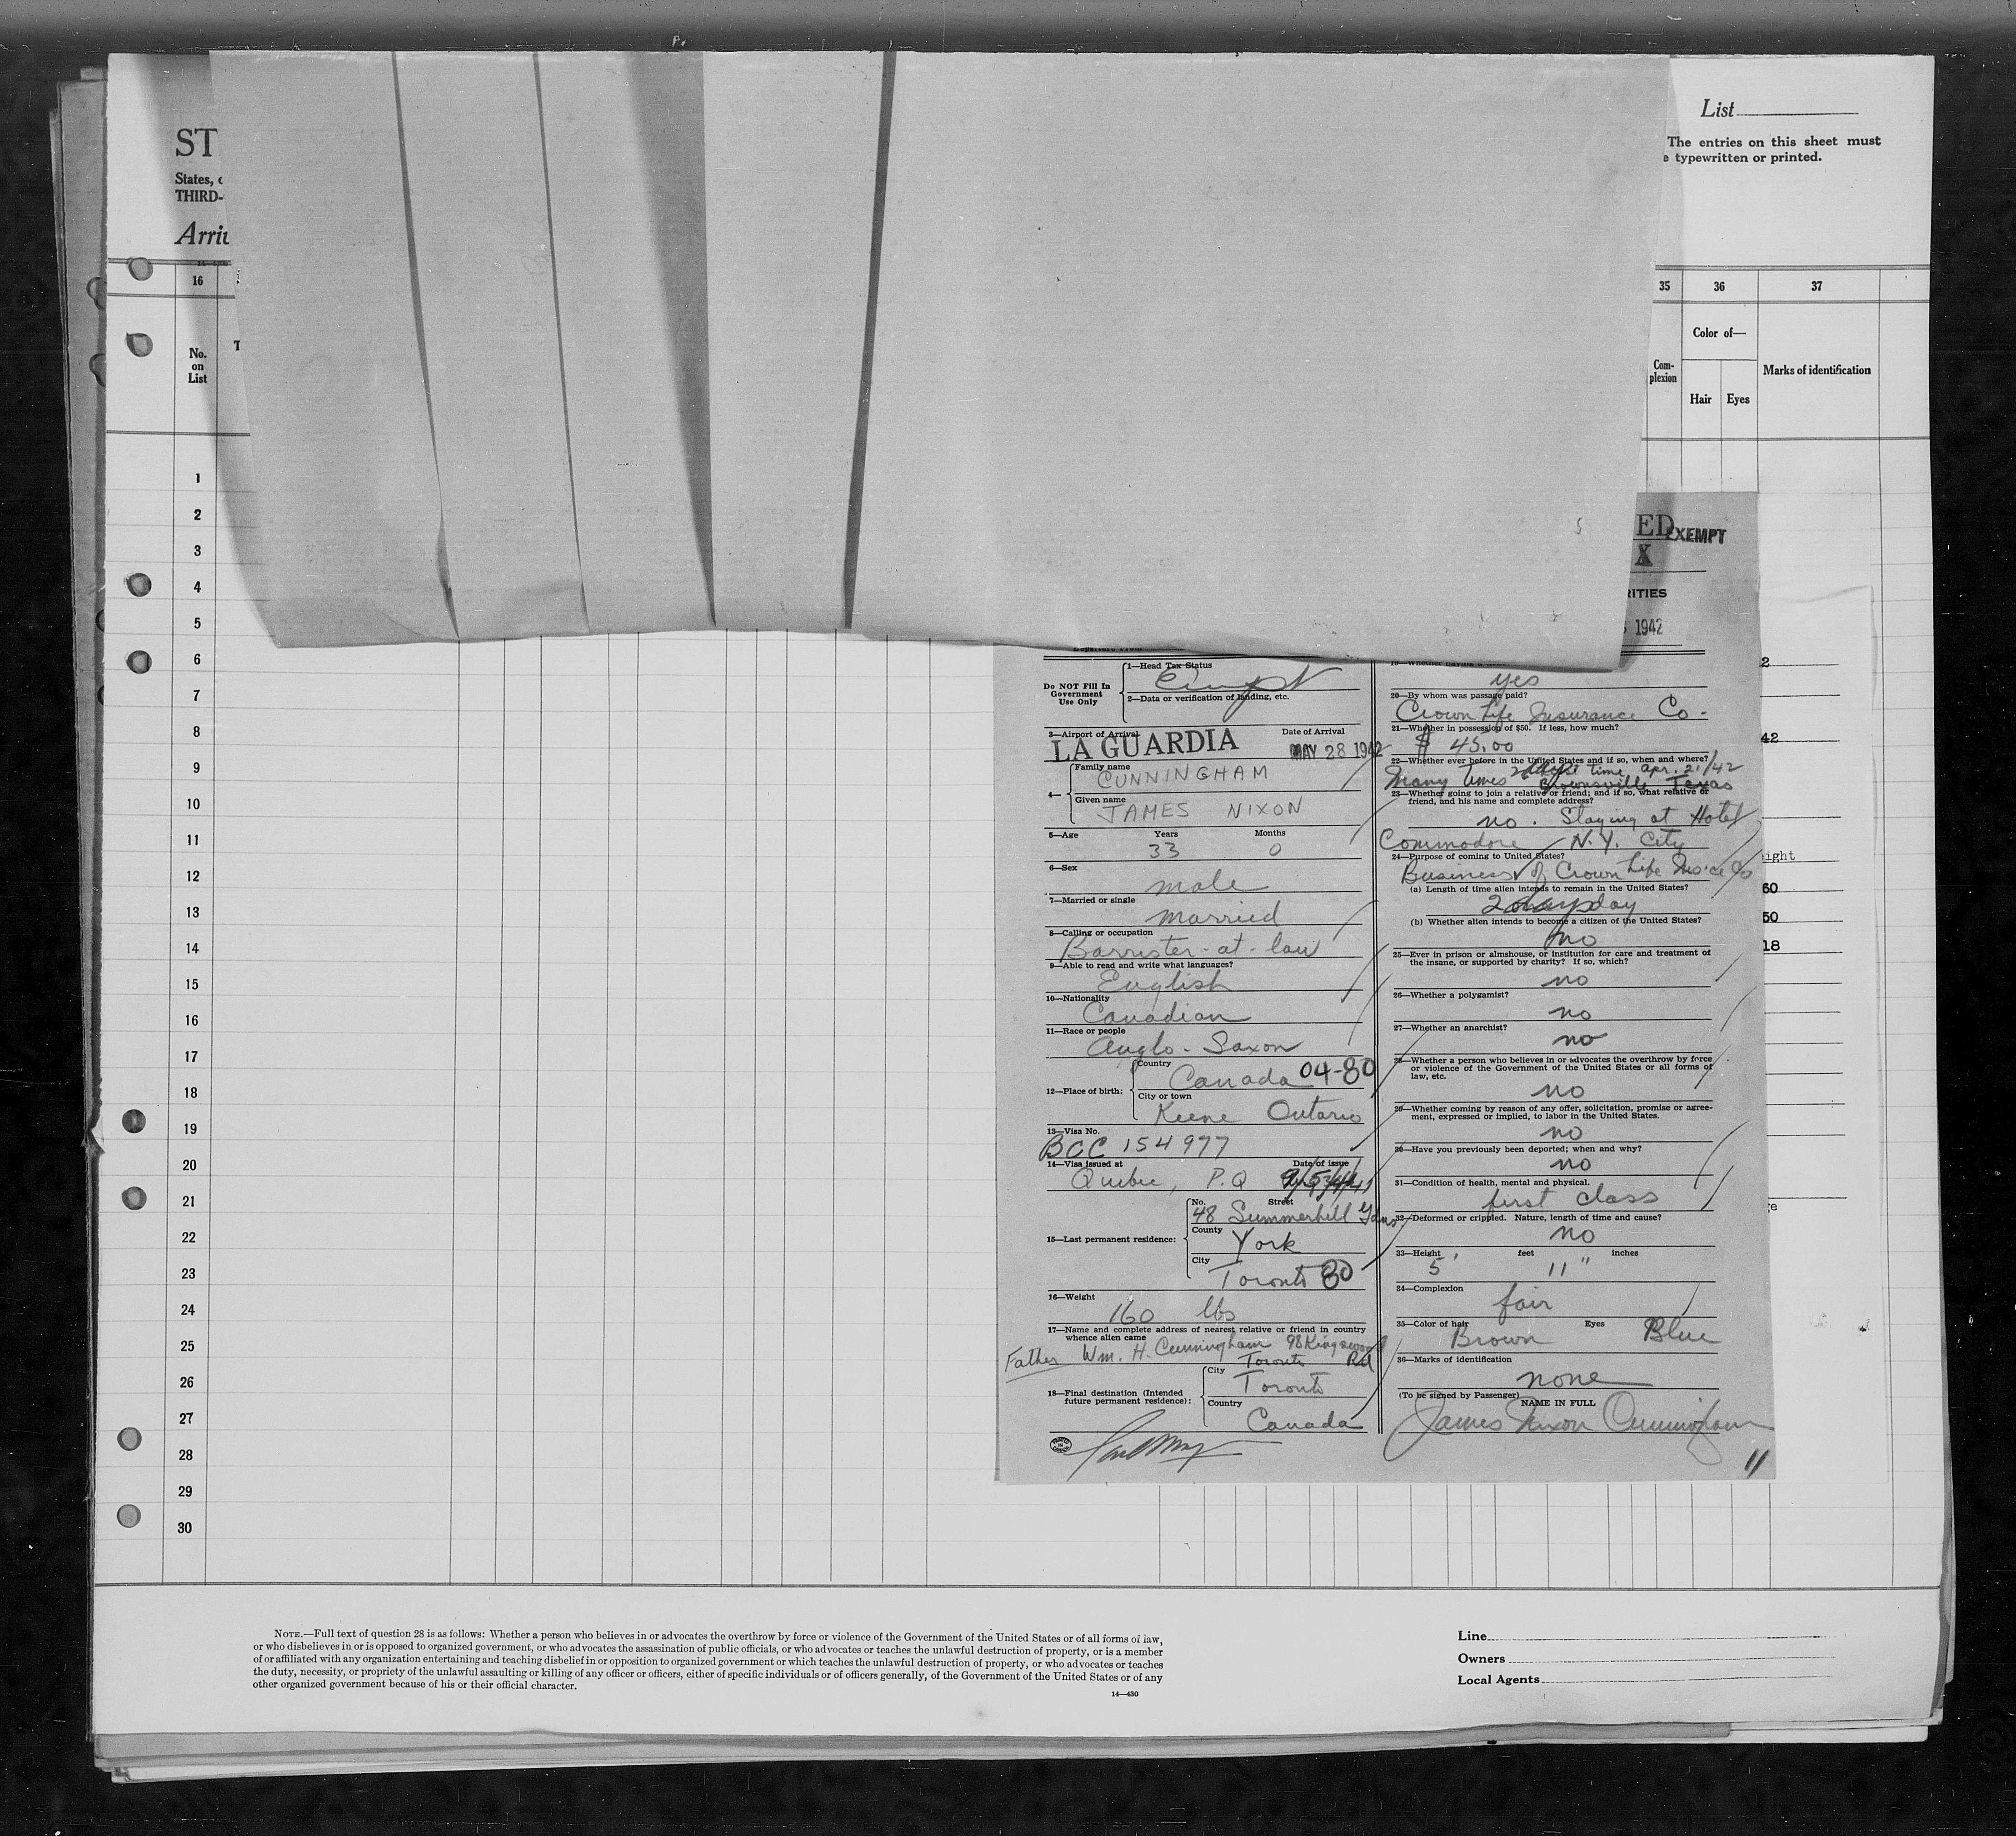 List
The entries on this sheet must
typewritten or printed.
ST
States,
THIRD-
16
35
36
37
No.
on
List
T
Com-
plexion
Color of—
Hair
Eyes
Marks of identification
1
2
3
4
5
6
7
8
9
10
11
12
13
14
15
16
17
18
19
20
21
22
23
24
25
26
27
28
29
30
ED
EXEMPT
X
RITIES
1942
Do NOT Fill In
Government
Use Only
1—Head Tax Status
2—Data or verification of landing, etc.
3—Airport of Arrival
Date of Arrival
LA GUARDIA
MAY 28 1942
4—
Family name
CUNNINGHAM
Given name
JAMES NIXON
5—Age
Years
Months
33
0
6—Sex
male
7—Married or single
married
8—Calling or occupation
Barrister-at-law
9—Able to read and write what languages?
English
10—Nationality
Canadian
11—Race or people
Anglo-Saxon
12—Place of birth:
Country
Canada 04-80
City or town
Keene Ontario
13—Visa No.
BCC 154977
14—Visa issued at
Date of issue
Quebec, P.Q
15—Last permanent residence:
No.
Street
48 Summerhill Gdns
County
York
City
Toronto 80
16—Weight
160 lbs
17—Name and complete address of nearest relative or friend in country
whence alien came
Father Wm. H. Cunningham 98 Kingswood
Toronto Rd
18—Final destination (Intended
future permanent residence):
City
Toronto
Country
Canada
yes
20—By whom was passage paid?
Crown Life Insurance Co.
21—Whether in possession of $50. If less, how much?
$ 45.00
22—Whether ever before in the United States and if so, when and where?
Many times time Apr. 21/42
Brownsville Texas
23—Whether going to join a relative or friend; and if so, what relative or
friend, and his name and complete address?
no. Staying at Hotel
Commodore N.Y. City
24—Purpose of coming to United States?
Business of Crown Life Ins'ce Co
(a) Length of time alien intends to remain in the United States?
2 day
(b) Whether alien intends to become a citizen of the United States?
no
25—Ever in prison or almshouse, or institution for care and treatment of
the insane, or supported by charity? If so, which?
no
26—Whether a polygamist?
no
27—Whether an anarchist?
no
28—Whether a person who believes in or advocates the overthrow by force
or violence of the Government of the United States or all forms of
law, etc.
no
29—Whether coming by reason of any offer, solicitation, promise or agree-
ment, expressed or implied, to labor in the United States.
no
30—Have you previously been deported; when and why?
no
31—Condition of health, mental and physical.
first class
32—Deformed or crippled. Nature, length of time and cause?
no
33—Height feet inches
5' 11"
34—Complexion
fair
35—Color of hair Eyes
Brown Blue
36—Marks of identification
none
(To be signed by Passenger)
NAME IN FULL
James Nixon Cunningham
11
2
42
ight
60
50
18
NOTE.—Full text of question 28 is as follows: Whether a person who believes in or advocates the overthrow by force or violence of the Government of the United States or of all forms of law,
or who disbelieves in or is opposed to organized government, or who advocates the assassination of public officials, or who advocates or teaches the unlawful destruction of property, or is a member
of or affiliated with any organization entertaining and teaching disbelief in or opposition to organized government or which teaches the unlawful destruction of property, or who advocates or teaches
the duty, necessity, or propriety of the unlawful assaulting or killing of any officer or officers, either of specific individuals or of officers generally, of the Government of the United States or of any
other organized government because of his or their official character.
14—430
Line
Owners
Local Agents